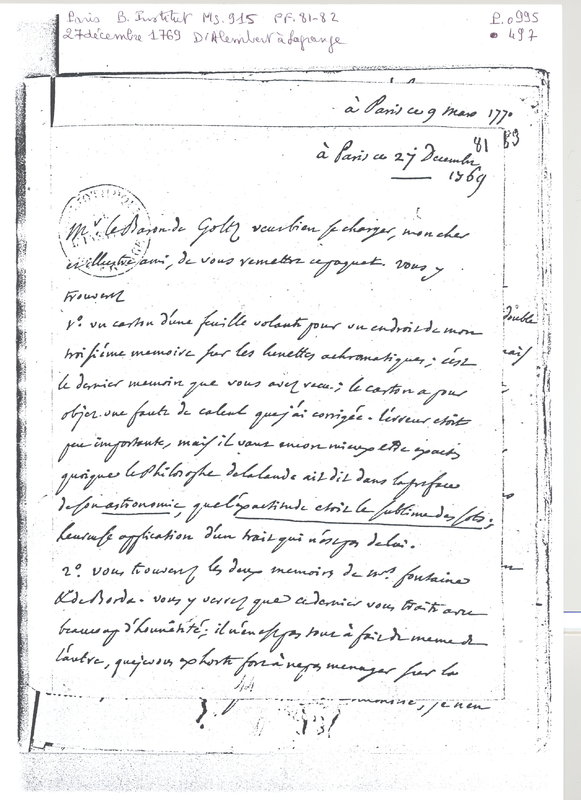 Paris B. Institut Ms. 915 PF. 81-82
P. 0995
27 décembre 1769 D'Alembert à Lagrange
• 497
à Paris ce 9 mars 1770
81
83
à Paris ce 27 Decembre
1769
Mr. le Baron de Goltz veut bien se charger, mon cher
et illustre ami, de vous remettre ce paquet. vous y
trouverez
1o. un carton d'une feuille volante pour un endroit de mon
double
troisiéme memoire sur les lunettes achromatiques; c'est
le dernier memoire que vous avez reçu; le carton a pour
objet une faute de calcul que j'ai corrigée. l'erreur etoit
peu importante, mais il vaut encore mieux etre exact
quoique le Philosophe delalande ait dit dans la preface
de son astronomie, que l'exactitude etoit le sublime des sots;
heureuse application d'un trait qui n'est pas de lui.
2o. vous trouverez les deux memoires de mrs. fontaine
& de Borda. vous y verrez que ce dernier vous traite avec
beaucoup d'honnêteté; il n'en est pas tout à fait de meme de
l'autre, que je vous exhorte fort à ne pas menager sur la
je n'en